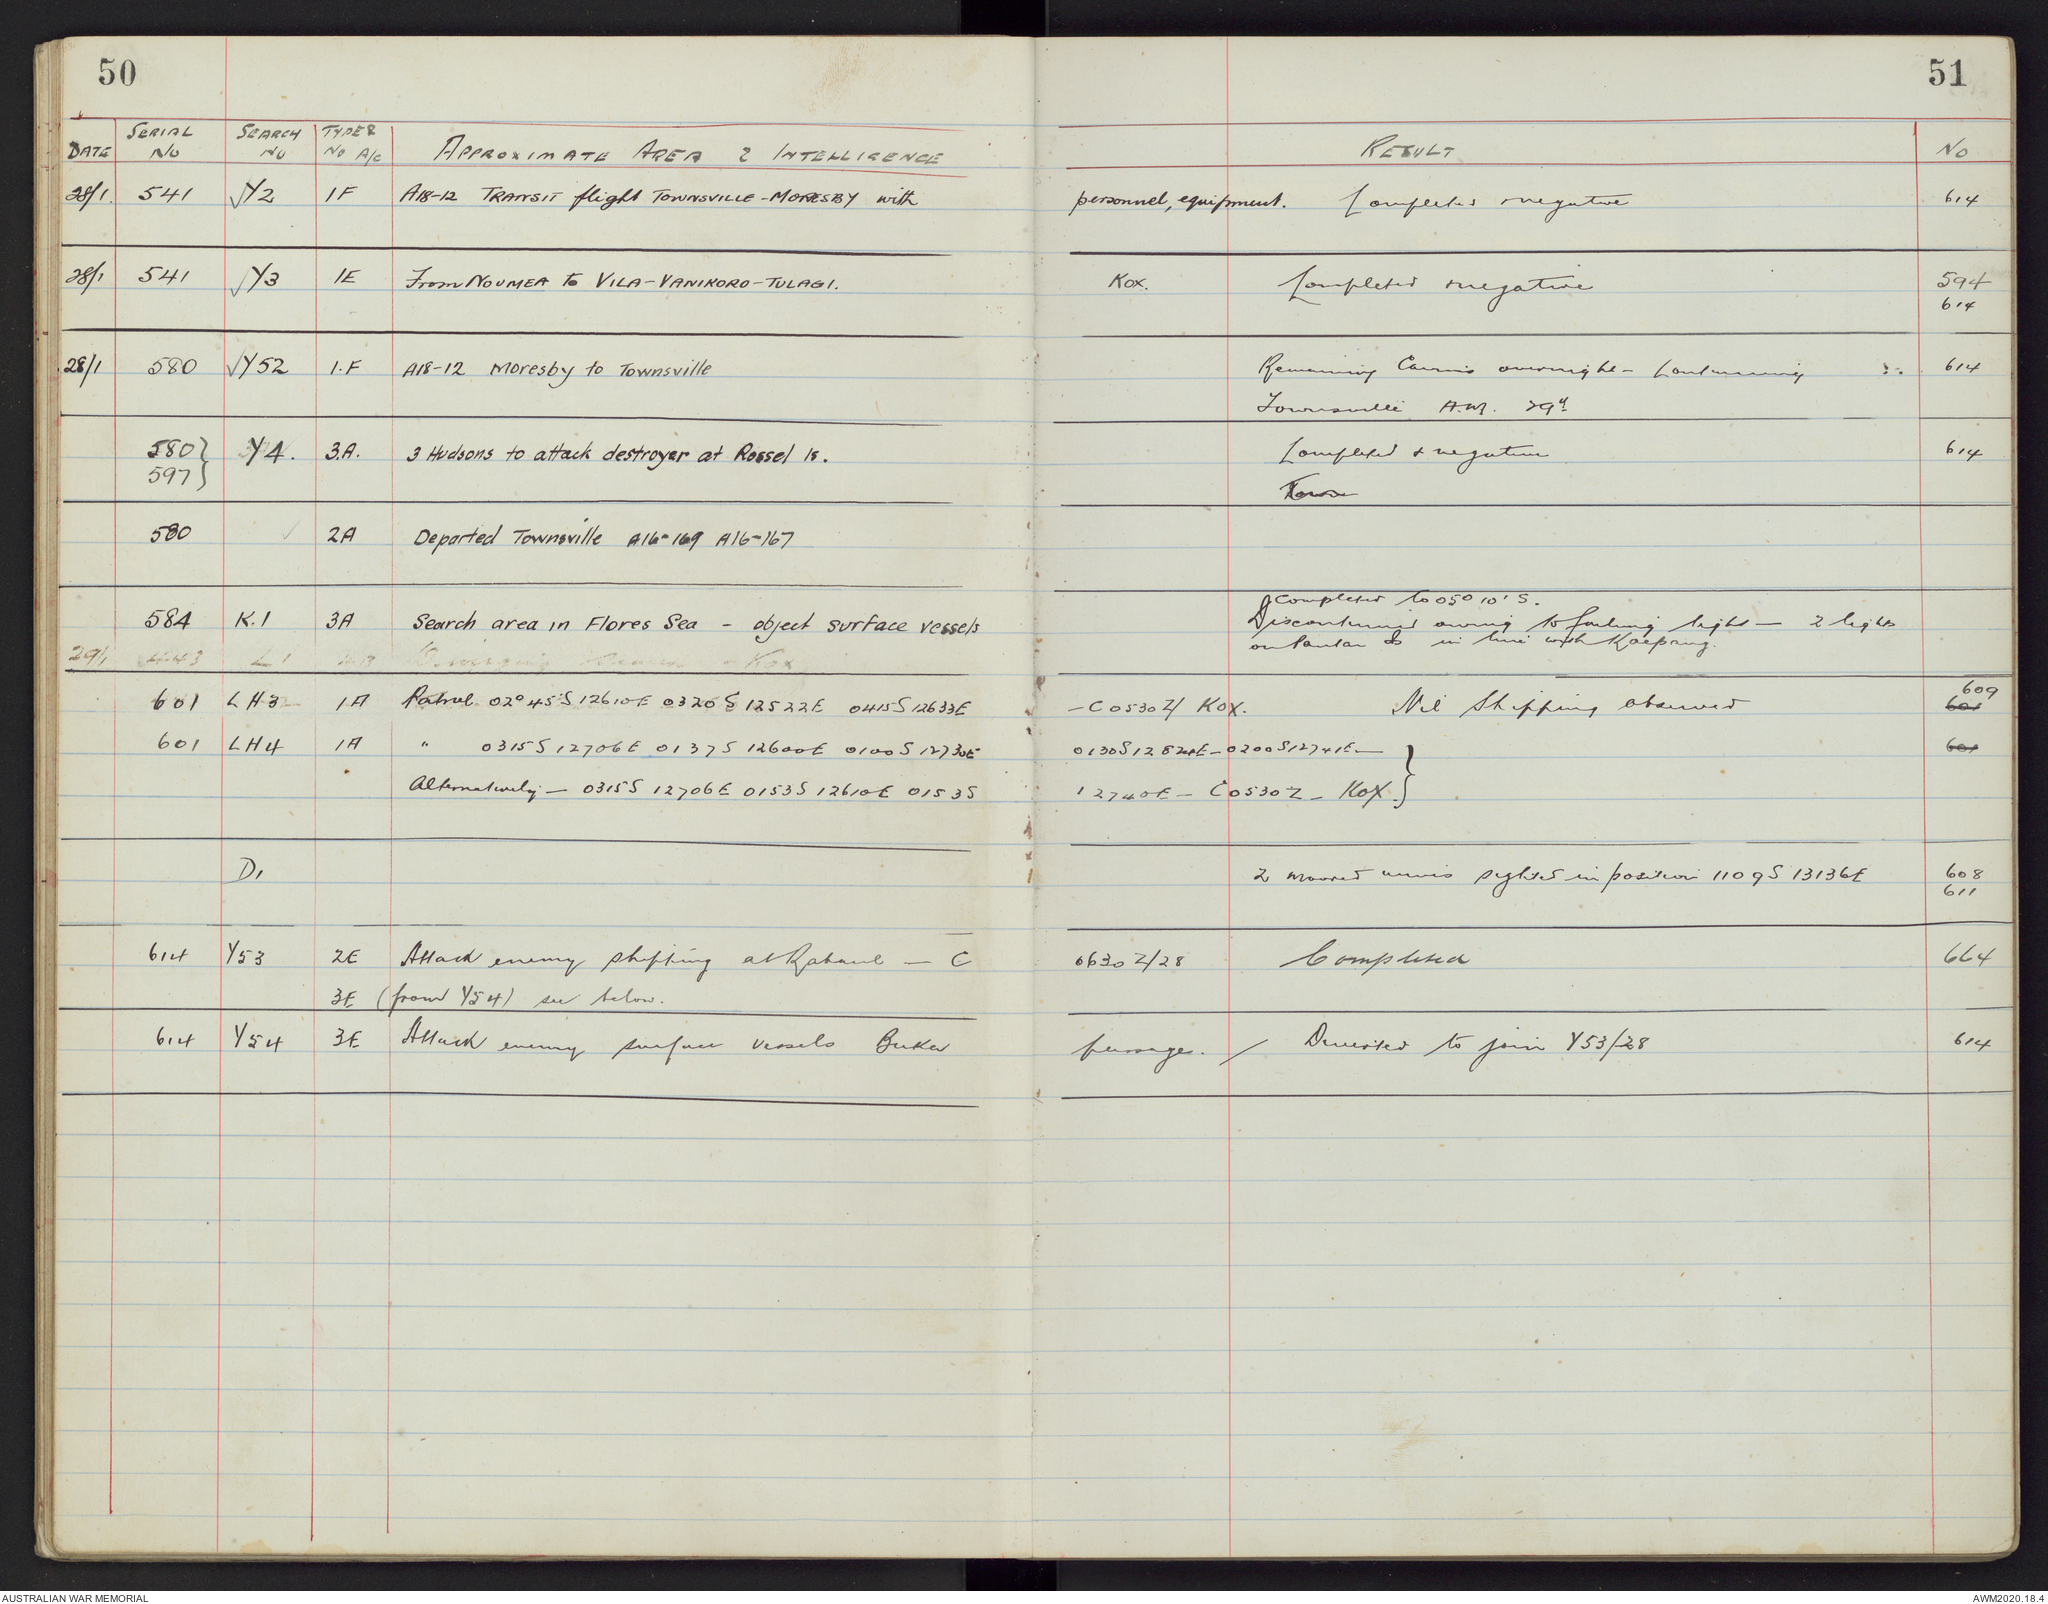 50
51
DATE SERIAL NO SEARCH NO TYPE & NO A/C APPROXIMATE AREA & INTELLIGENCE RESULT NO
28/1. 541 √Y2 1F A18-12 TRANSIT flight TOWNSVILLE-MORESBY with personnel, equipment. Completed negative 614
28/1 541 √Y3 1E From NOUMEA to VILA-VANIKORO-TULAGI. Kox. Completed negative 594
614
28/1 580 √Y52 1.F A18-12 Moresby to Townsville Remaining Cairns overnight - Continuing 614
Townsville A.M. 29th
580} Y4. 3A. 3 Hudsons to attack destroyer at Rossel Is. Completed & negative 614
597}
580 √ 2A Departed Townsville A16-169 A16-167
Completed to 05° 10' S.
584 K.1 3A Search area in Flores Sea - object surface vessels Discontinued owing to failing light - 2 lights
on Pantar Is in line with Koepang.
29/1 443 L1 Kox
601 LH3 1A Patrol 02°45'S 12610E 0320S 12522E 0415S 12633E - C0530Z/ KOX. Nil Shipping observed 609
601
601 LH4 1A " 0315S 12706E 0137S 12600E 0100S 12730E 0130S 12824E - 0200S 12741E - 601
Alternatively - 0315S 12706E 0153S 12610E 0153S 12740E - C0530Z - KOX}
D1 2 moored mines sighted in position 1109S 13136E 608
611
614 Y53 2E Attack enemy shipping at Rabaul - C 0630Z/28 Completed 664
3E (from Y54) see below.
614 Y54 3E Attack enemy surface vessels Buka passage. / Diverted to join Y53/28 614
AUSTRALIAN WAR MEMORIAL
AWM2020.18.4